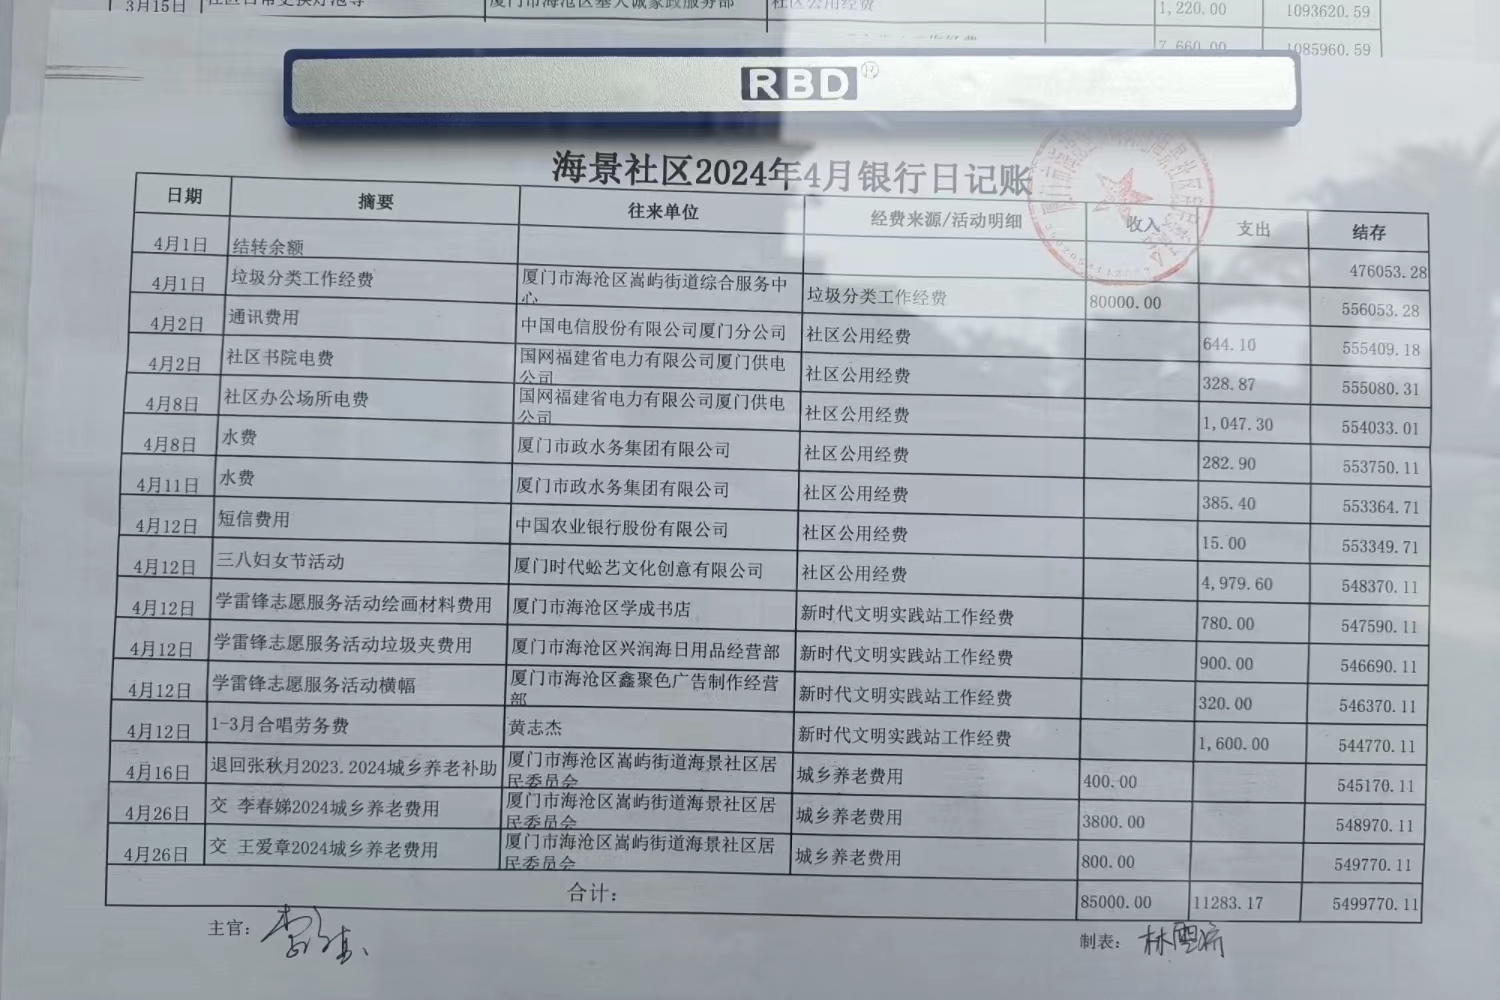 3月15日 厦门市海沧区 诚家政服务部 社区公用经费 1,220.00 1093620.59
7,660.00 1085960.59
RBD®
海景社区2024年4月银行日记账
日期 摘要 往来单位 经费来源/活动明细 收入 支出 结存
4月1日 结转余额 476053.28
4月1日 垃圾分类工作经费 厦门市海沧区嵩屿街道综合服务中心 垃圾分类工作经费 80000.00 556053.28
4月2日 通讯费用 中国电信股份有限公司厦门分公司 社区公用经费 644.10 555409.18
4月2日 社区书院电费 国网福建省电力有限公司厦门供电公司 社区公用经费 328.87 555080.31
4月8日 社区办公场所电费 国网福建省电力有限公司厦门供电公司 社区公用经费 1,047.30 554033.01
4月8日 水费 厦门市政水务集团有限公司 社区公用经费 282.90 553750.11
4月11日 水费 厦门市政水务集团有限公司 社区公用经费 385.40 553364.71
4月12日 短信费用 中国农业银行股份有限公司 社区公用经费 15.00 553349.71
4月12日 三八妇女节活动 厦门时代蚣艺文化创意有限公司 社区公用经费 4,979.60 548370.11
4月12日 学雷锋志愿服务活动绘画材料费用 厦门市海沧区学成书店 新时代文明实践站工作经费 780.00 547590.11
4月12日 学雷锋志愿服务活动垃圾夹费用 厦门市海沧区兴润海日用品经营部 新时代文明实践站工作经费 900.00 546690.11
4月12日 学雷锋志愿服务活动横幅 厦门市海沧区鑫聚色广告制作经营部 新时代文明实践站工作经费 320.00 546370.11
4月12日 1-3月合唱劳务费 黄志杰 新时代文明实践站工作经费 1,600.00 544770.11
4月16日 退回张秋月2023.2024城乡养老补助 厦门市海沧区嵩屿街道海景社区居民委员会 城乡养老费用 400.00 545170.11
4月26日 交 李春娣2024城乡养老费用 厦门市海沧区嵩屿街道海景社区居民委员会 城乡养老费用 3800.00 548970.11
4月26日 交 王爱章2024城乡养老费用 厦门市海沧区嵩屿街道海景社区居民委员会 城乡养老费用 800.00 549770.11
合计： 85000.00 11283.17 5499770.11
主官： 制表：